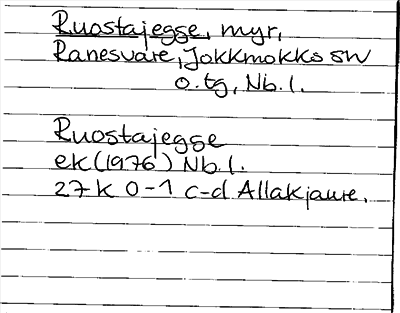 Ruostajegge, myr,
Ranesvare, Jokkmokks SV
o. tg, Nb. l.
Ruostajegge
ek (1976) Nb. l.
27 K 0-1 c-d Allakjaure.